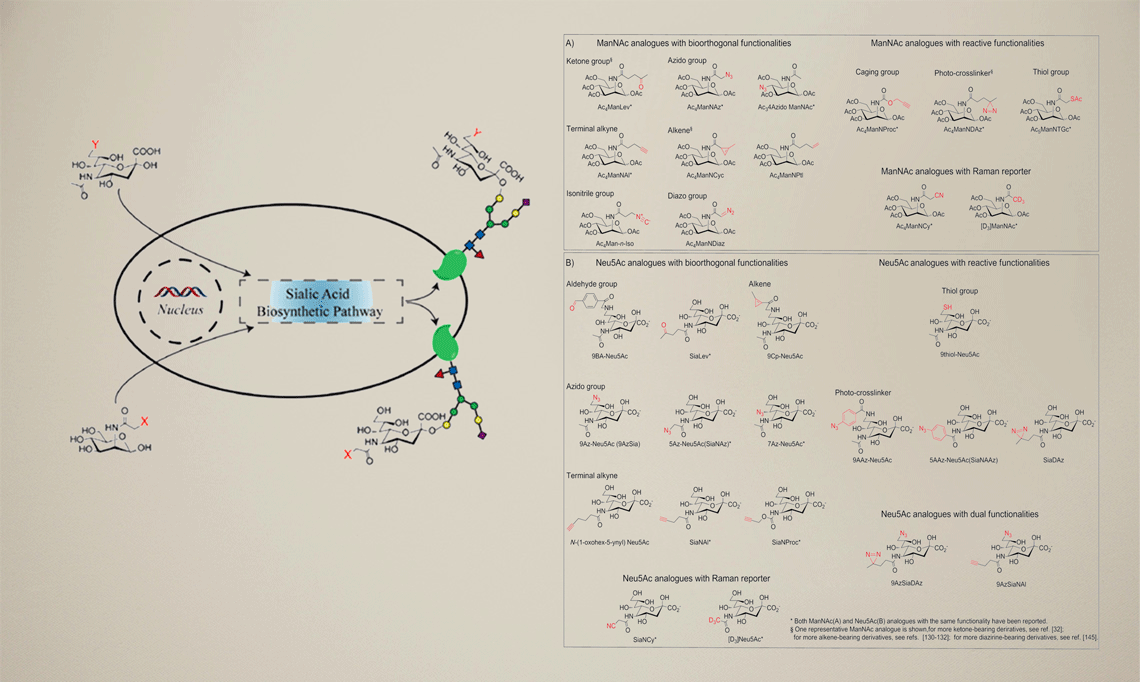 Y
OH
COOH
HO
OH
HN
O
HO
HO
Y
OH
HO
HN
COOH
O
HO
O
Nucleus
Sialic Acid
Biosynthetic Pathway
O
X
HN
HO
HO
HO
O
OH
HO
OH
HO
COOH
HN
O
O
HO
X
O
A)
ManNAc analogues with bioorthogonal functionalities
ManNAc analogues with reactive functionalities
Ketone group§
Azido group
Caging group
Photo-crosslinker§
Thiol group
Ac₄ManLev*
Ac₄ManNAz*
Ac₃4Azido ManNAc*
Ac₄ManNProc*
Ac₄ManNDAz*
Ac₅ManNTGc*
Terminal alkyne
Alkene§
Ac₄ManNAl*
Ac₄ManNCyc
Ac₄ManNPtl
ManNAc analogues with Raman reporter
Isonitrile group
Diazo group
Ac₄ManNCy*
[D₃]ManNAc*
Ac₄Man-n-Iso
Ac₄ManNDiaz
B)
Neu5Ac analogues with bioorthogonal functionalities
Neu5Ac analogues with reactive functionalities
Aldehyde group
Alkene
Thiol group
9BA-Neu5Ac
SiaLev*
9Cp-Neu5Ac
9thiol-Neu5Ac
Azido group
Photo-crosslinker
9Az-Neu5Ac (9AzSia)
5Az-Neu5Ac(SiaNAz)*
7Az-Neu5Ac*
9AAz-Neu5Ac
5AAz-Neu5Ac(SiaNAAz)
SiaDAz
Terminal alkyne
N-(1-oxohex-5-ynyl) Neu5Ac
SiaNAl*
SiaNProc*
Neu5Ac analogues with dual functionalities
9AzSiaDAz
9AzSiaNAl
Neu5Ac analogues with Raman reporter
SiaNCy*
[D₃]Neu5Ac*
* Both ManNAc(A) and Neu5Ac(B) analogues with the same functionality have been reported.
§ One representative ManNAc analogue is shown,for more ketone-bearing deriatives, see ref. [32];
for more alkene-bearing derivatives, see refs. [130-132]; for more diazirine-bearing derivatives, see ref. [145].